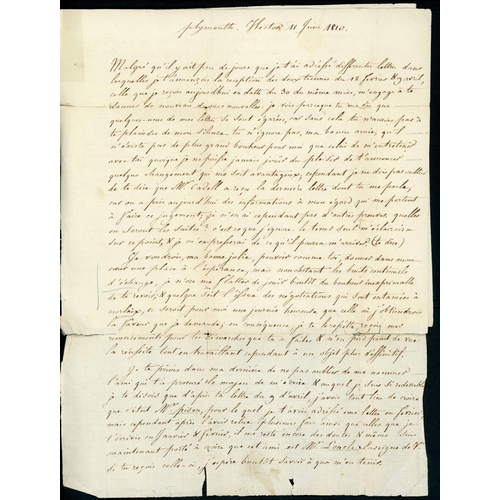 plymouth, Hector 11 Juin 1810.
Malgré qu'il y ait peu de jours que je t'ai adressé différentes lettres dans
lesquelles je t'annonçais la réception des deux tiennes du 18 février & 9 avril,
celle que je reçois aujourd'hui en datte du 30 du même mois, m'engage à te
donner de nouveau de mes nouvelles, je vois parceque tu me dis que
quelques-unes de mes lettres se sont égarées, car sans cela tu n'aurais pas à
te plaindre de mon silence, tu n'ignore pas, ma bonne amie, qu'il
n'existe pas de plus grand bonheur pour moi que celui de m'entretenir
avec toi quoique je ne puisse jamais jouir du plaisir de t'annoncer
quelque changement qui me soit avantageux, cependant je ne dois pas oublier
de te dire que Mr. Cadell a reçu la dernière lettre dont tu me parle,
car on a pris aujourd'hui des informations à mon égard qui me portent
à faire ce jugement, je n'en ai cependant pas d'autres preuves, quelles
en seront les suites? c'est ce que j'ignore, le tems seul m'éclaircira
sur ce point, & je n'en préferai de ce qu'il pourra m'arriver
Je voudrois, ma bonne julie, pouvoir comme toi, donner dans mon
cœur une place à l'espérance, mais nonobstant les bruits continuels
d'échange, je n'ose me flatter de jouir bientôt du bonheur inexprimable
de te revoir; & quelque soit l'issue des négociations qui sont entamées à
morlaix, ce seroit pour moi une journée heureuse que celle où j'obtiendrois
la faveur que je demande; en conséquence, je te le répète, reçois mes
remerciements pour les démarches que tu a faites & n'en perd point de vue
la réussite tout en travaillant cependant à un objet plus difficile.
Je te priois dans ma dernière de ne pas oublier de me nommer
l'ami qui t'a procuré le moyen de m'écrire & auquel je suis si redevable,
je te disois que d'après ta lettre du 9 d'avril, j'avois tout lieu de croire
que c'étoit Mr. prison, pour lequel je t'avois adressé une lettre en février
mais cependant après l'avoir relue plusieurs fois ainsi que celles que je
t'écrivis en Janvier & février, il me reste encore des doutes & même suis
maintenant porté à croire que cet ami est Mr. Loncle Enseigne de Vau
si tu reçois celle-ci, j'espère bientôt savoir à quoi m'en tenir.